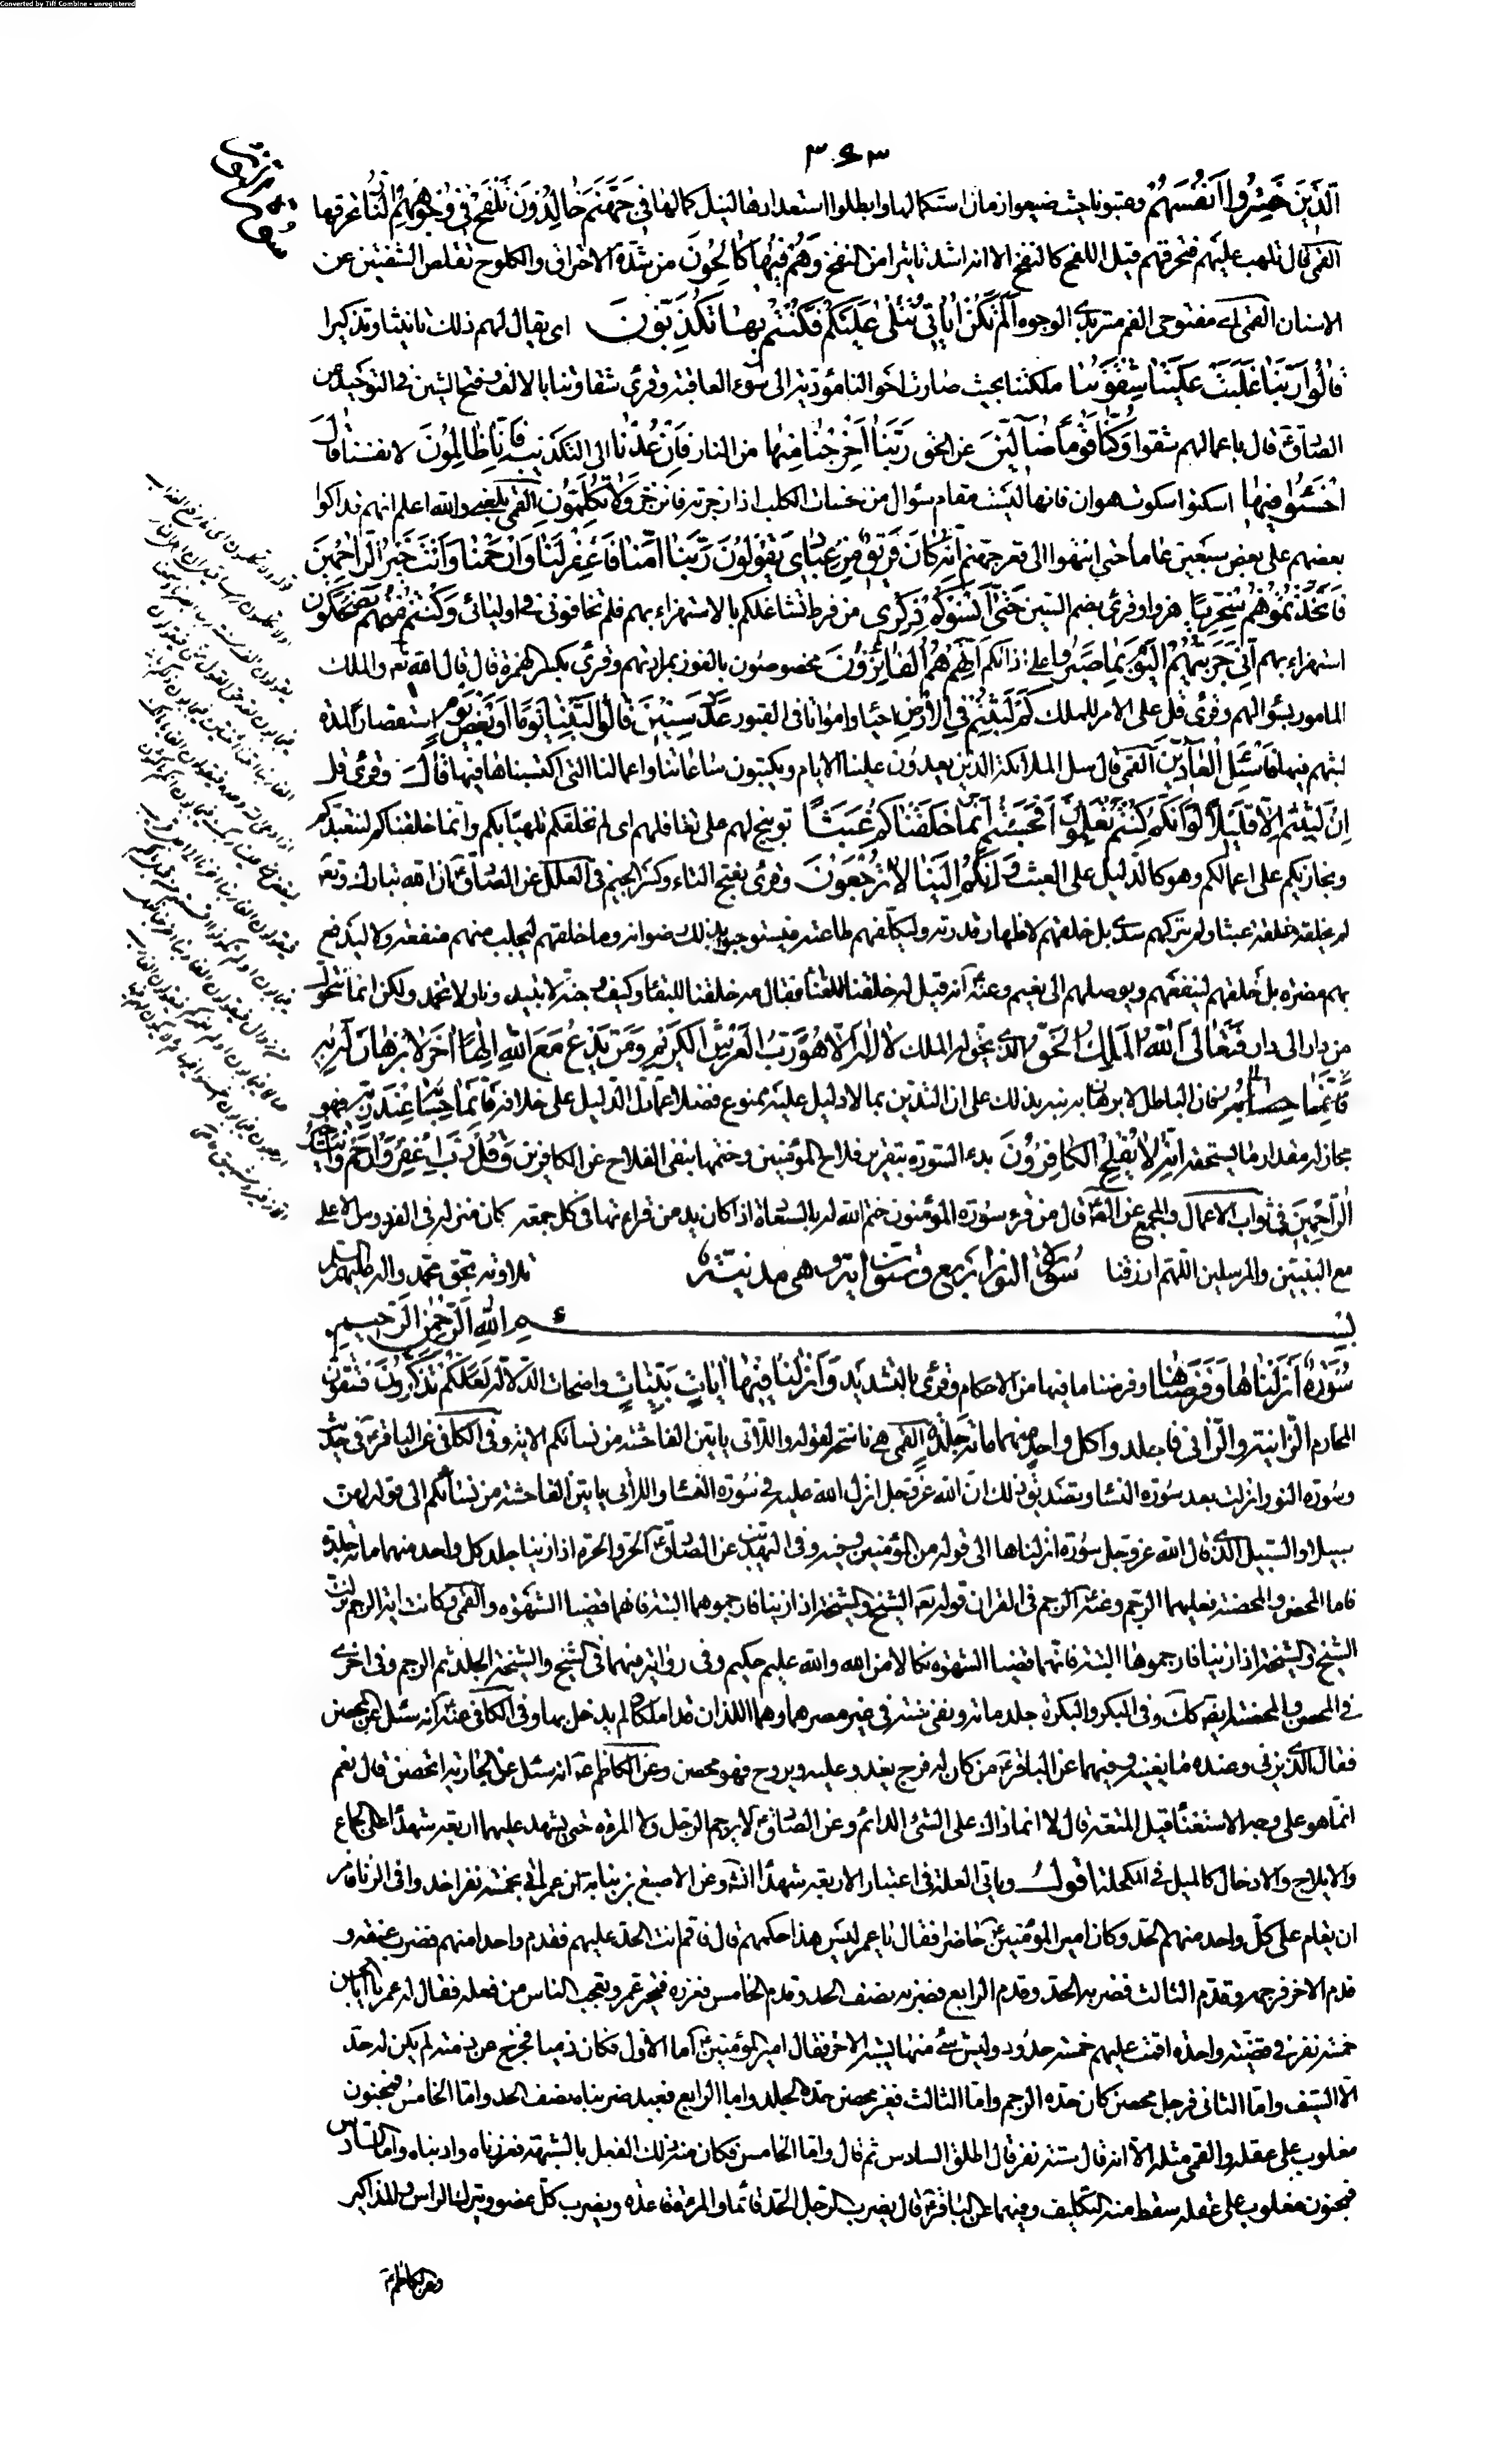 Converted by Tiff Combine - unregistered
٣٤٣
الَّذِينَ خَسِرُوا أَنْفُسَهُمْ وغبنوها حيث ضيعوا زمان استكمالها وابطلوا استعدادها لنيل كمالها فِي جَهَنَّمَ خَالِدُونَ تَلْفَحُ وُجُوهَهُمُ النَّارُ تحرقها
القمي قال تلهب عليهم فتحرقهم قيل اللفح كالنفح الا انه اشد تاثيرا من النفح وَهُمْ فِيهَا كَالِحُونَ من شدة الاحتراق والكلوح تقلص الشفتين عن
الاسنان القمي اي مفتوحي الفم متربدي الوجوه أَلَمْ تَكُنْ آيَاتِي تُتْلَى عَلَيْكُمْ فَكُنْتُمْ بِهَا تُكَذِّبُونَ اى يقال لهم ذلك تانيثا وتذكيرا
قَالُوا رَبَّنَا غَلَبَتْ عَلَيْنَا شِقْوَتُنَا ملكتنا بحيث صارت احوالنا مؤدية الى سوء العاقبة وقرئ شقاوتنا بالالف وفتح الشين في التوحيد عن
الصادق قال باعمالهم شقوا وَكُنَّا قَوْمًا ضَالِّينَ عن الحق رَبَّنَا أَخْرِجْنَا مِنْهَا من النار فَإِنْ عُدْنَا الى التكذيب فَإِنَّا ظَالِمُونَ لانفسنا قَالَ
اخْسَئُوا فِيهَا اسكتوا سكوت هوان فانها ليست مقام سؤال من خسات الكلب اذا زجرته فانزجر وَلَا تُكَلِّمُونِ القمي بلغني والله اعلم انهم تداكوا
بعضهم على بعض سبعين عاما حتى انتهوا الى قعر جهنم إِنَّهُ كَانَ فَرِيقٌ مِنْ عِبَادِي يَقُولُونَ رَبَّنَا آمَنَّا فَاغْفِرْ لَنَا وَارْحَمْنَا وَأَنْتَ خَيْرُ الرَّاحِمِينَ
فَاتَّخَذْتُمُوهُمْ سِخْرِيًّا هزوا وقرئ بضم السين حَتَّى أَنْسَوْكُمْ ذِكْرِي من فرط تشاغلكم بالاستهزاء بهم فلم تخافوني في اوليائي وَكُنْتُمْ مِنْهُمْ تَضْحَكُونَ
استهزاء بهم إِنِّي جَزَيْتُهُمُ الْيَوْمَ بِمَا صَبَرُوا على اذاكم أَنَّهُمْ هُمُ الْفَائِزُونَ مخصوصون بالفوز بمراداتهم وقرئ بكسر الهمزة قَالَ قال الله تع والملك
المامور بسؤالهم وقرئ قل على الامر للملك كَمْ لَبِثْتُمْ فِي الْأَرْضِ احياء وامواتا في القبور عَدَدَ سِنِينَ قَالُوا لَبِثْنَا يَوْمًا أَوْ بَعْضَ يَوْمٍ استقصارا لمدة
لبثهم فيها فَاسْئَلِ الْعَادِّينَ القمي قال سل الملائكة الذين يعدون علينا الايام ويكتبون ساعاتنا واعمالنا التي اكتسبناها فيها قَالَ وقرئ قل
إِنْ لَبِثْتُمْ إِلَّا قَلِيلًا لَوْ أَنَّكُمْ كُنْتُمْ تَعْلَمُونَ أَفَحَسِبْتُمْ أَنَّمَا خَلَقْنَاكُمْ عَبَثًا توبيخ لهم على تغافلهم اى لم نخلقكم تلهيا بكم وانما خلقناكم لنتعبدكم
ونجازيكم على اعمالكم وهو كالدليل على البعث وَأَنَّكُمْ إِلَيْنَا لَا تُرْجَعُونَ وقرئ بفتح التاء وكسر الجيم في العلل عن الصادق ان الله تبارك وتع
لم يخلق خلقه عبثا ولم يتركهم سدى بل خلقهم لاظهار قدرته وليكلفهم طاعته فيستوجبوا بذلك رضوانه وما خلقهم ليجلب منهم منفعة ولا ليدفع
بهم مضرة بل خلقهم لينفعهم ويوصلهم الى نعيم وعنه انه قيل له خلقنا للفناء فقال مه خلقنا للبقاء وكيف وجنة لا تبيد ونار لا تخمد ولكن انما نتحول
من دار الى دار فَتَعَالَى اللَّهُ الْمَلِكُ الْحَقُّ الذي يحق له الملك لَا إِلَهَ إِلَّا هُوَ رَبُّ الْعَرْشِ الْكَرِيمِ وَمَنْ يَدْعُ مَعَ اللَّهِ إِلَهًا آخَرَ لَا بُرْهَانَ لَهُ بِهِ
فان الباطل لا برهان به نبه بذلك على ان التدين بما لا دليل عليه ممنوع فضلا عما دل الدليل على خلافه فَإِنَّمَا حِسَابُهُ عِنْدَ رَبِّهِ فهو
مجاز له مقدار ما يستحقه إِنَّهُ لَا يُفْلِحُ الْكَافِرُونَ بدء السورة بتقرير فلاح المؤمنين وختمها بنفي الفلاح عن الكافرين وَقُلْ رَبِّ اغْفِرْ وَارْحَمْ وَأَنْتَ خَيْرُ
الرَّاحِمِينَ في ثواب الاعمال والمجمع عن الصادق قال من قرء سورة المؤمنون ختم الله له بالسعادة اذا كان يدمن قراءتها في كل جمعة كان منزله في الفردوس الاعلى
مع النبيين والمرسلين اللهم ارزقنا سورة النور اربع وستون اية وهي مدنية تلاوته بحق محمد واله عليهم السلم
بِسْمِ اللَّهِ الرَّحْمَنِ الرَّحِيمِ
سُورَةٌ أَنْزَلْنَاهَا وَفَرَضْنَاهَا وفرضنا ما فيها من الاحكام وقرئ بالتشديد وَأَنْزَلْنَا فِيهَا آيَاتٍ بَيِّنَاتٍ واضحات الدلالة لَعَلَّكُمْ تَذَكَّرُونَ فتتقون
المحارم الزانية والزاني فاجلدوا كل واحد منهما مائة جلدة القمي هي ناسخة لقوله واللاتي ياتين الفاحشة من نسائكم الاية وفي الكافي عن الباقر في حديث
وسورة النور انزلت بعد سورة النساء وتصديق ذلك ان الله عز وجل انزل الله عليه في سورة النساء واللاتي ياتين الفاحشة من نسائكم الى قوله لهن
سبيلا والسبيل الذي قال الله عز وجل سورة انزلناها الى قوله من المؤمنين وفيه وفي التهذيب عن الصادق الحر والحرة اذا زنيا جلد كل واحد منهما مائة جلدة
فاما المحصن والمحصنة فعليهما الرجم وعنه الرجم في القران قوله تع الشيخ والشيخة اذا زنيا فارجموهما البتة فانهما قضيا الشهوة والقمي وكانت اية الرجم نزلت
الشيخ والشيخة اذا زنيا فارجموهما البتة فانهما قضيا الشهوة نكالا من الله والله عليم حكيم وفي رواية فيهما في الشيخ والشيخة الجلد ثم الرجم وفي اخرى
في المحصن والمحصنة ايضا كك وفي البكر والبكرة جلد مائة ونفي سنة في غير مصرهما وهما اللذان قد املكا ولم يدخل بها وفي الكافي عنه انه سئل عن المحصن
فقال الذي يزني وعنده ما يغنيه وفيهما عن الباقر من كان له فرج يغدو عليه ويروح فهو محصن وعن الكاظم انه سئل عن الجارية اتحصن قال نعم
انما هو على وجه الاستغناء قيل المتعة قال لا انما ذاك على الشئ الدائم وعن الصادق لا يرجم الرجل ولا المرءة حتى يشهد عليهما اربعة شهداء على الجماع
والايلاج والادخال كالميل في المكحلة اقول وياتي العلة في اعتبار الاربعة شهداء انش وعن الاصبغ بن نباتة ان عمر اتي بخمسة نفر اخذوا في الزنا فامر
ان يقام على كل واحد منهم الحد وكان امير المؤمنين حاضرا فقال يا عمر ليس هذا حكمهم قال فاقم انت الحد عليهم فقدم واحدا منهم فضرب عنقه و
قدم الاخر فرجمه وقدم الثالث فضربه الحد وقدم الرابع فضربه نصف الحد وقدم الخامس فعزره فتحير عمر وتعجب الناس من فعله فقال له عمر يا ابا الحسن
خمسة نفر في قضية واحدة اقمت عليهم خمسة حدود وليس شئ منها يشبه الاخر فقال امير المؤمنين اما الاول فكان ذميا فخرج عن ذمته لم يكن له حد
الا السيف واما الثاني فرجل محصن كان حده الرجم واما الثالث فغير محصن حده الجلد واما الرابع فعبد ضربناه نصف الحد واما الخامس فمجنون
مغلوب على عقله والقمي مثله الا انه قال ستة نفر قال اطلق السادس ثم قال واما الخامس فكان منه ذلك الفعل بالشبهة فعزرناه وادبناه واما السادس
فمجنون مغلوب على عقله سقط منه التكليف وفيهما عن الباقر قال يضرب الرجل الحد قائما والمرءة قاعدة ويضرب كل عضو ويترك الراس والمذاكير
وعن الكاظم